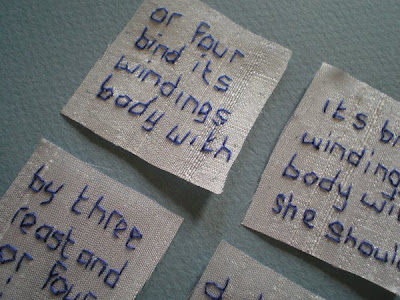 or four
bind its
windings
body with
its bi
winding
body wit
she shoul
by three
reast and
or four